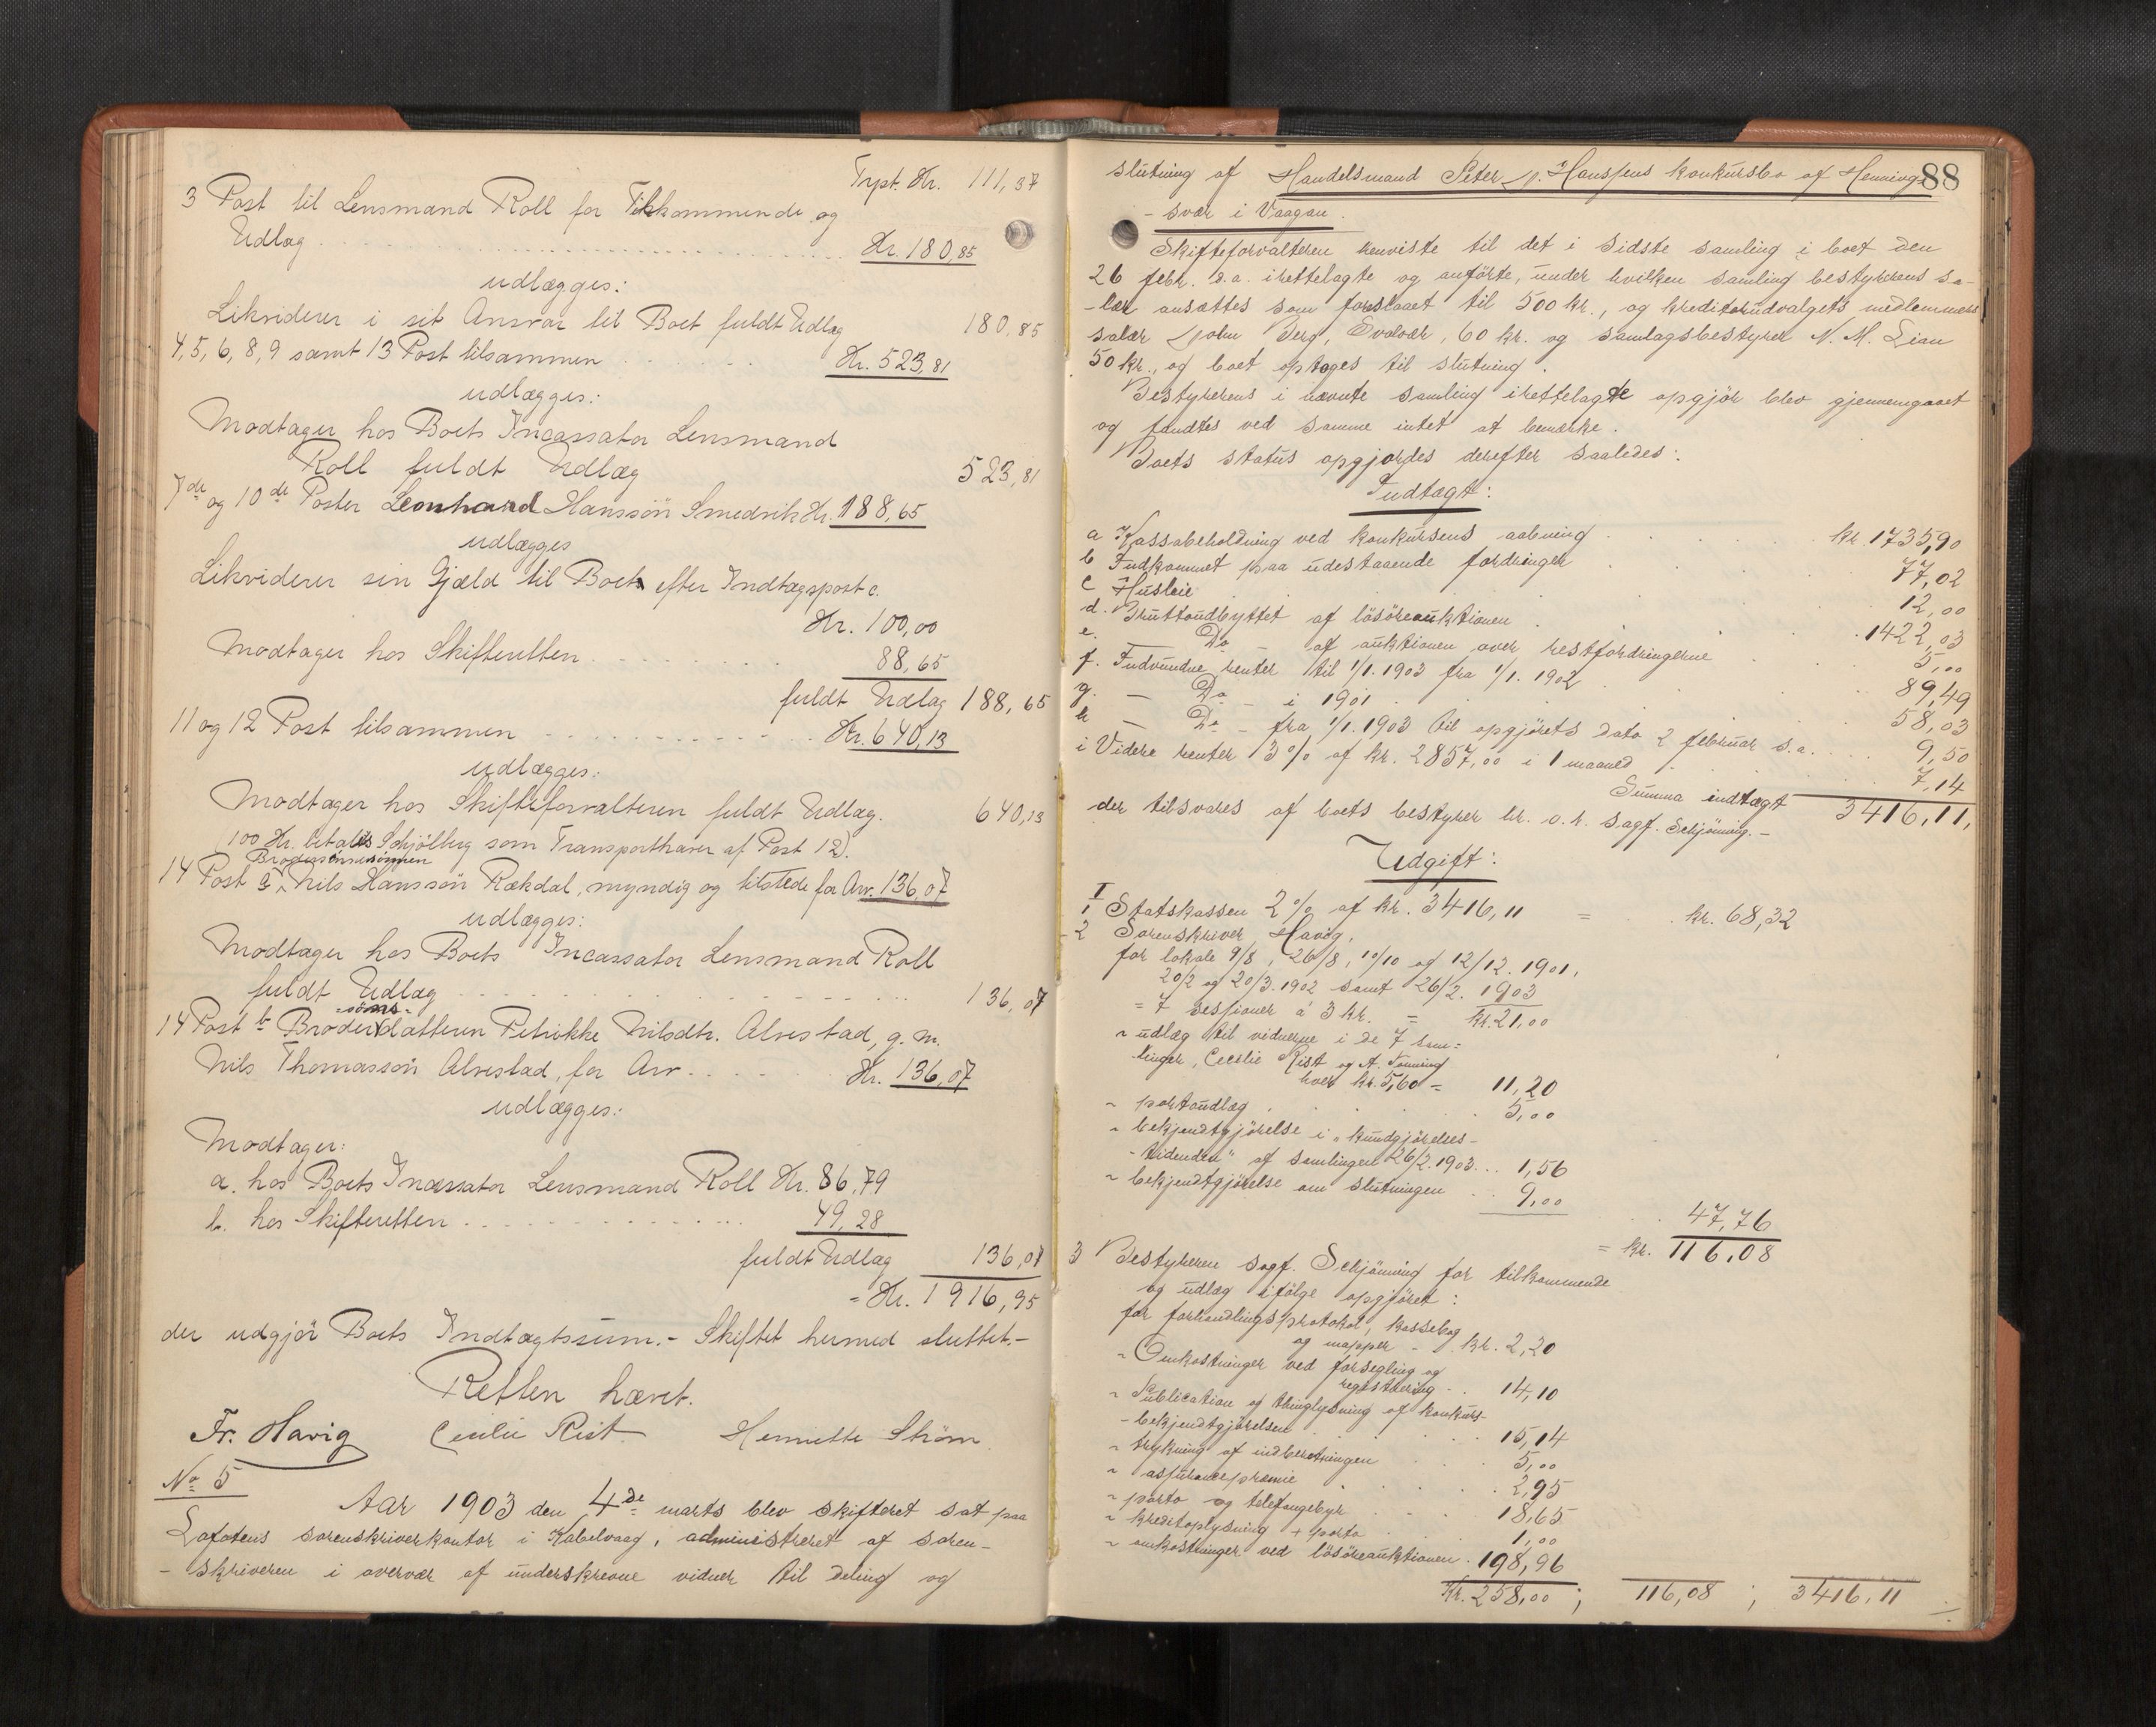 Trpt. Kr. 111,37
3 Post til Lensmand Roll for Tilkommende og
Udlæg . . . Kr. 180,85
udlægges:
Likviderer i sit Ansvar til Boet fuldt Udlæg 180,85
4, 5, 6, 8, 9 samt 13 Post tilsammen . . . Kr. 523,81
udlægges:
Modtager hos Boets Incassator Lensmand
Roll fuldt Udlæg 523,81
7de og 10de Poster Leonhard Hanssön Smedvik Kr. 188,65
udlægges
Likviderer sin Gjæld til Boet efter Indtægspost c.
Kr. 100,00
Modtager hos Skifteretten . . . 88,65
fuldt Udlæg 188,65
11 og 12 Post tilsammen . . . Kr. 640,13
udlægges:
Modtager hos Skifteforvalteren fuldt Udlæg. 640,13
(100 Kr. betales Schjölberg som Transporthaver af Post 12).
Brodersönnesönnen
14 Post a Nils Hanssön Rækdal, myndig og tilstede for Arv. 136,07
udlægges:
Modtager hos Boets Incassator Lensmand Roll
fuldt Udlæg . . . 136,07
-söns-
14 Post b Broderdatteren Petrikke Nilsdtr. Alvestad, g. m.
Nils Thomassön Alvestad, for Arv . . . Kr. 136,07
udlægges:
Modtager:
a. hos Boets Incassator Lensmand Roll Kr. 86,79
b. hos Skifteretten . . . 49,28
fuldt Udlæg 136,07
= Kr. 1916,95
der udgjör Boets Indtægtssum. - Skiftet hermed sluttet. -
Retten hævet.
Fr. Havig Cecilie Rist Henriette Ström
No 5
Aar 1903 den 4de marts blev skifteret sat paa
Lofotens sorenskriverkontor i Kabelvaag, administreret af soren-
- skriveren i overvær af underskrevne vidner til deling og
88
slutning af Handelsmand Peter J. Hanssens konkursbo af Hennings-
- svær i Vaagan.
Skifteforvalteren henviste til det i sidste samling i boet den
26 febr. d.a. irettelagte og anförte, under hvilken samling bestyrerens sa-
- lær ansattes som foreslaaet til 500 kr., og kreditorudvalgets medlemmers
salær John Berg, Svolvær, 60 kr. og samlagsbestyrer N. M. Lian
50 kr., og boet optages til slutning.
Bestyrerens i nævnte samling irettelagte opgjör blev gjennemgaaet
og fandtes ved samme intet at bemærke.
Boets status opgjordes derefter saaledes:
Indtægt:
a Kassabeholdning ved konkursens aabning . . . kr. 1735,90
b Indkommet paa udestaaende fordringer . . . 77,02
c Husleie . . . 12,00
d. Bruttoudbyttet af lösöreauktionen . . . 1422,03
e. Do af auktionen over restfordringerne . . . 5,00
f. Indvundne renter til 1/1. 1903 fra 1/1. 1902 . . . 89,49
g. — Do - i 1901 . . . 58,03
h — Do - fra 1/1. 1903 til opgjörets dato 2 februar s.a. . . . 9,50
i Videre renter 3 % af kr. 2857,00 i 1 maaned . . . 7,14
Summa indtægt 3416,11,
der tilsvares af boets bestyrer hr. o.r. sagf. Schjönning. -
Udgift:
I
1 Statskassen 2 % af kr. 3416,11 = . . kr. 68,32
2 Sorenskriver Havig,
for lokale 9/8, 26/8, 10/10 og 12/12. 1901,
20/2 og 20/3. 1902 samt 26/2. 1903
= 7 sessioner á 3 kr. = kr. 21,00
" udlæg til vidnerne i de 7 sam-
linger, Cecilie Rist og A. Nönning
hver kr. 5,60 = 11,20
" portoudlæg . . . 5,00
" bekjendtgjörelse i "kundgjörelses-
- tidenden" af samlingen 26/2. 1903 . . . 1,56
" bekjendtgjörelse om slutningen . . 9,00
47,76
= kr. 116,08
3 Bestyreren sagf. Schjönning for tilkommende
og udlæg ifölge opgjöret:
for forhandlingsprotokol, kassebog
og mapper - kr. 2,20
" Omkostninger ved forsegling og
registrering . . 14,10
" Publication og thinglysning af konkurs-
- bekjendtgjörelsen . . . 15,14
" trykning af indberetningen . . . 5,00
" assurancepræmie . . . 2,95
" porto og telefongebyr . . . 18,65
" kreditoplysning + porto . . . 1,00
" omkostninger ved lösöreauktionen . 198,96
Kr. 258,00 ; 116,08 ; 3416,11